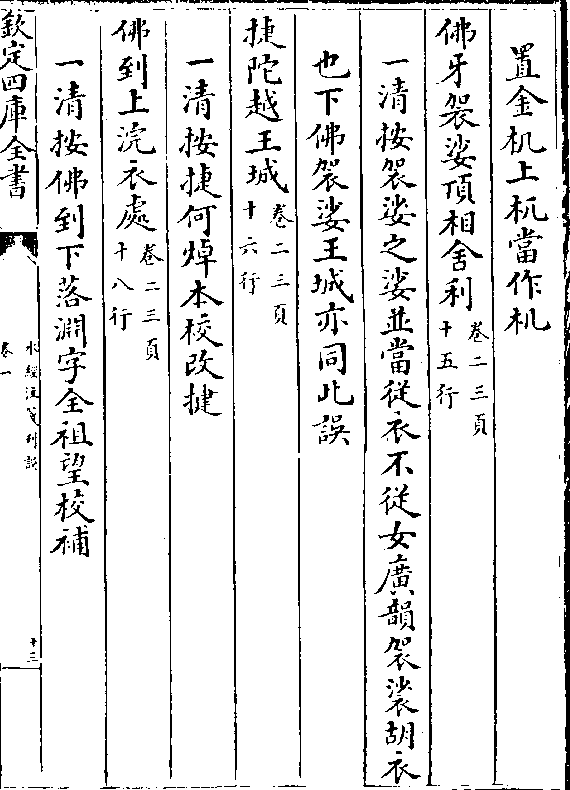 置金机上机當作杌
佛牙袈娑頂相舍利卷二三頁十五行
一清按袈娑之娑並當從衣不從女廣韻袈裟胡衣
也下佛袈娑王城亦同此誤
捷陀越王城卷二三頁十六行
一清按捷何焯本校改揵
佛到上浣衣處卷二三頁十八行
一清按佛到下落淵字全祖望校補
欽定四庫全書
水經注箋刊誤
卷一
十三